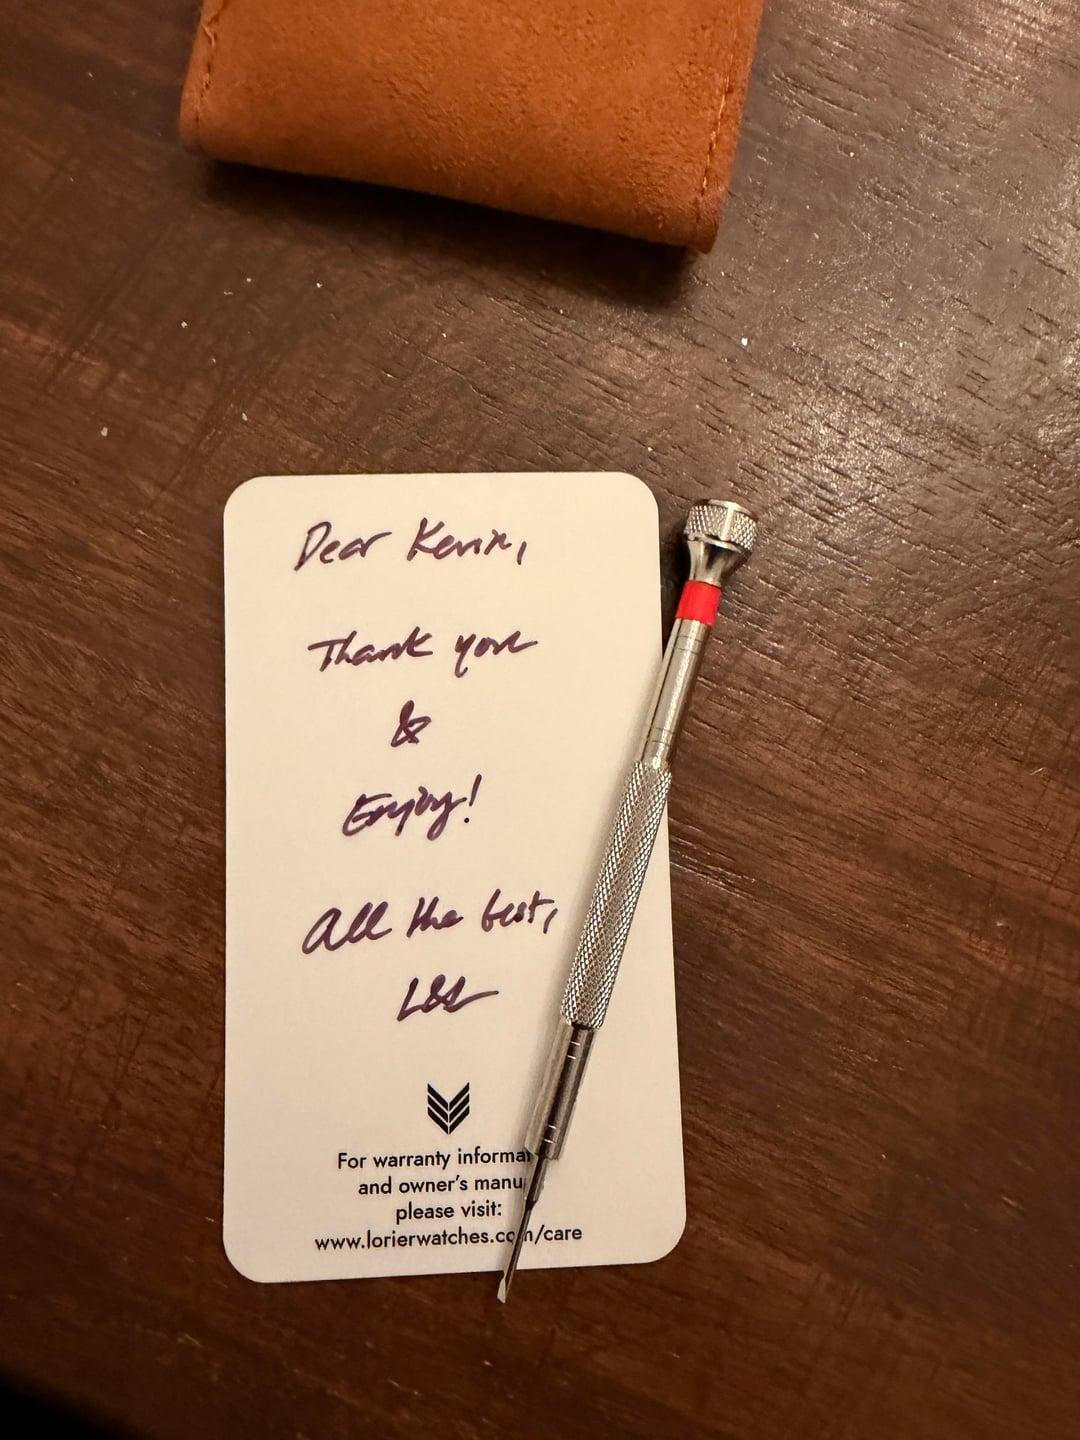 Dear Kevin,
Thank you
&
Enjoy!
All the best,
L&L
For warranty informat
and owner's manu
please visit:
www.lorierwatches.com/care